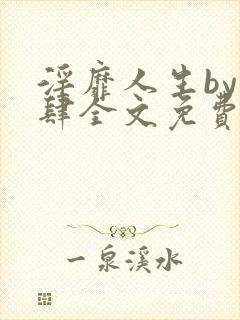 淫靡人生by
肆全文免費
一泉溪水